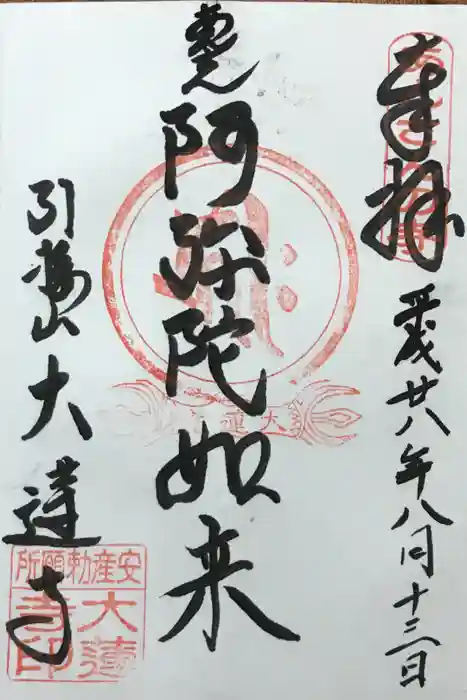 奉拝
平成廿八年八月十三日
阿弥陀如来
引接山大蓮寺
大蓮寺
安産勅願所
大蓮寺印